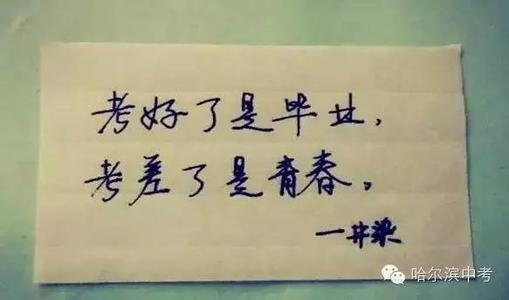 考好了是毕业，
考差了是青春。
一井梁
哈尔滨中考